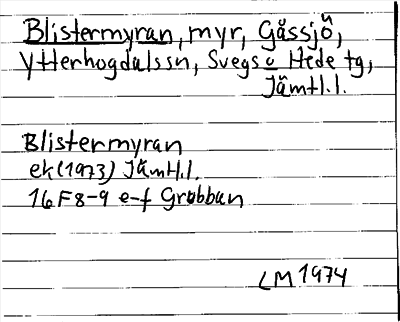 Blistermyran, myr, Gåssjö,
Ytterhogdalssn, Svegs o Hede tg,
Jämtl.l.
Blistermyran
ek (1973) Jämtl.l.
16F8-9 e-f Grubban
LM 1974